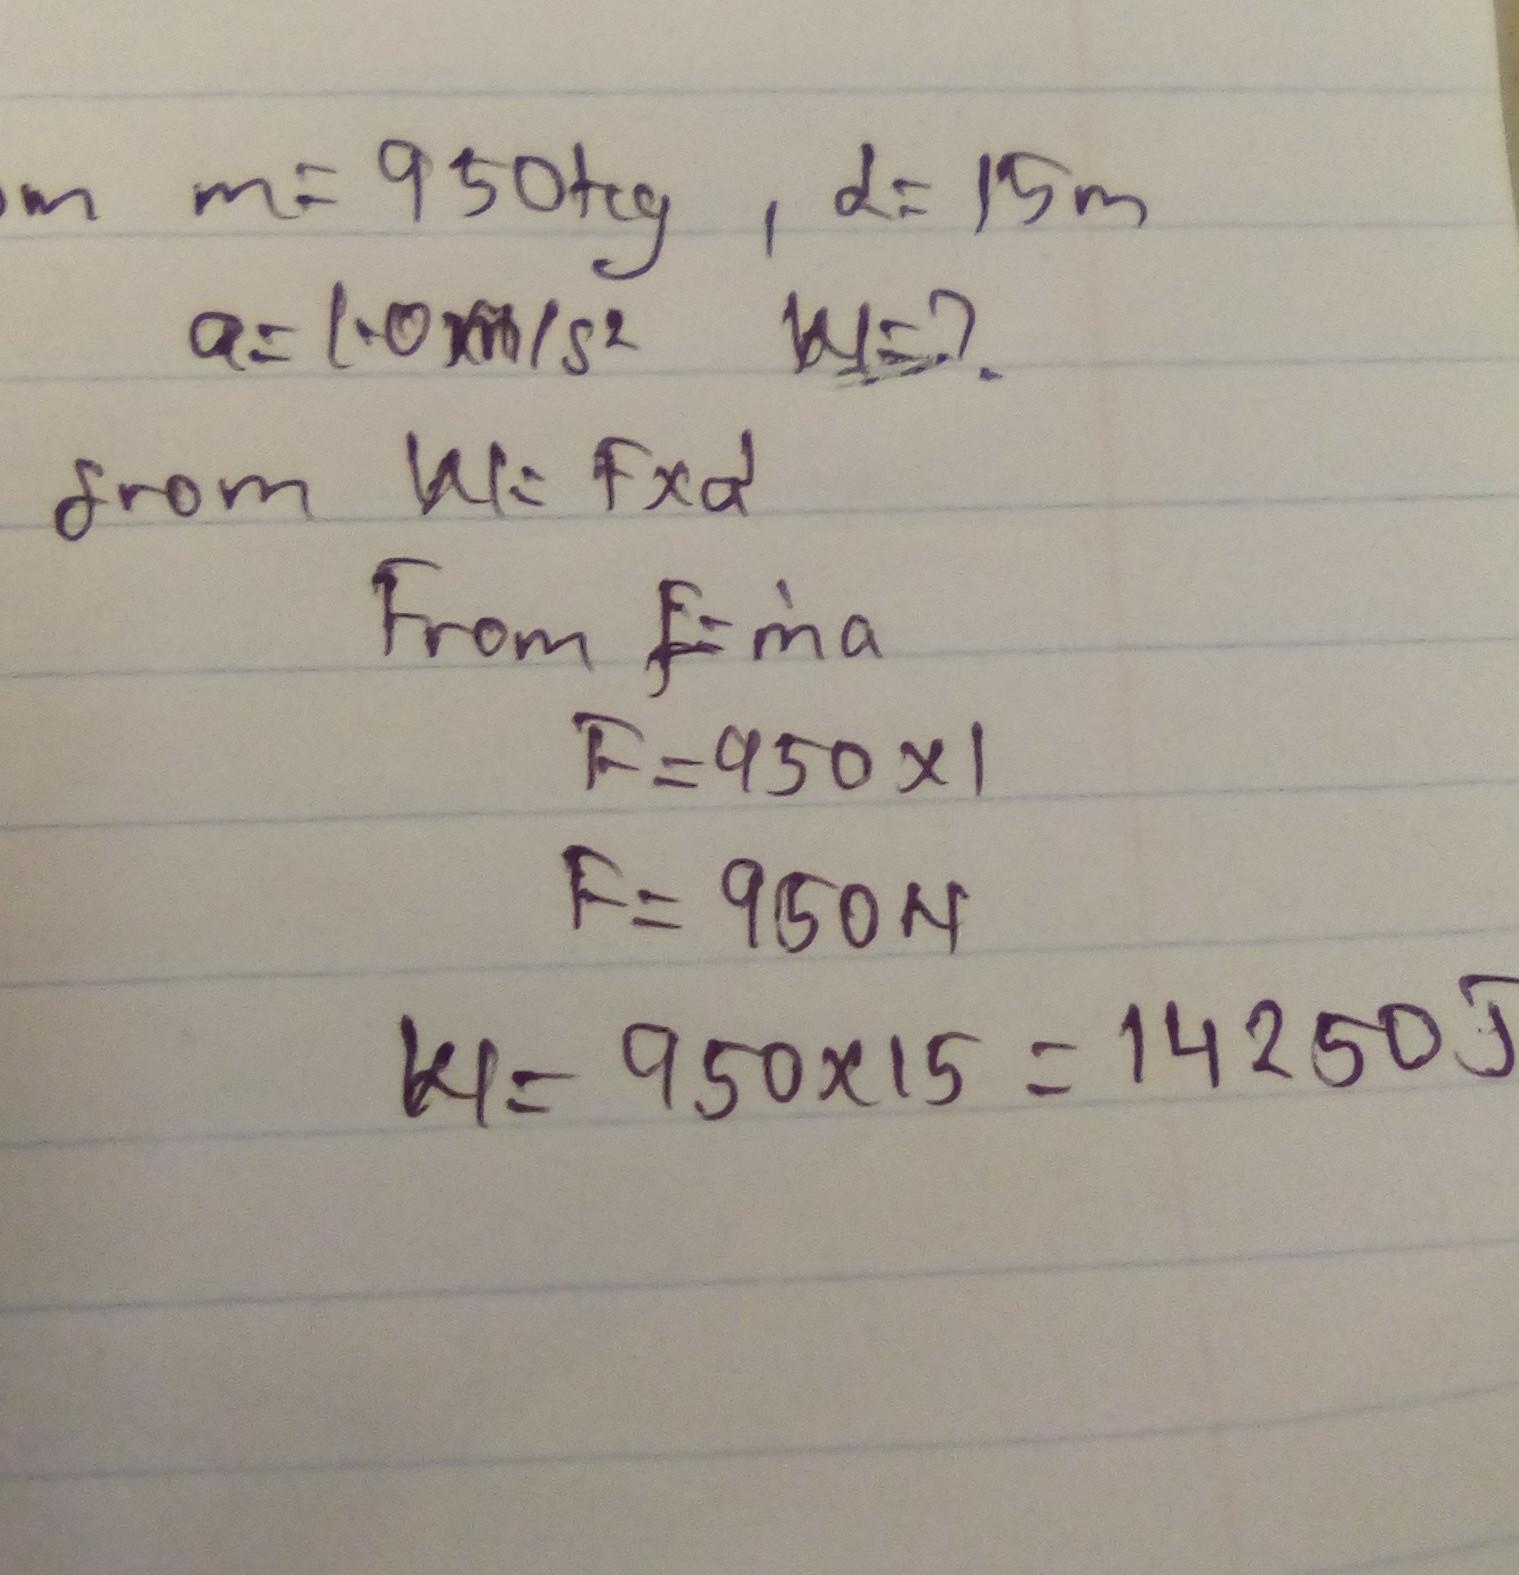 om m= 950kg , d= 15m
a= 1.0m/s² W=?.
from W= Fxd
From F=ma
F=950x1
F= 950N
W= 950x15 = 14250J